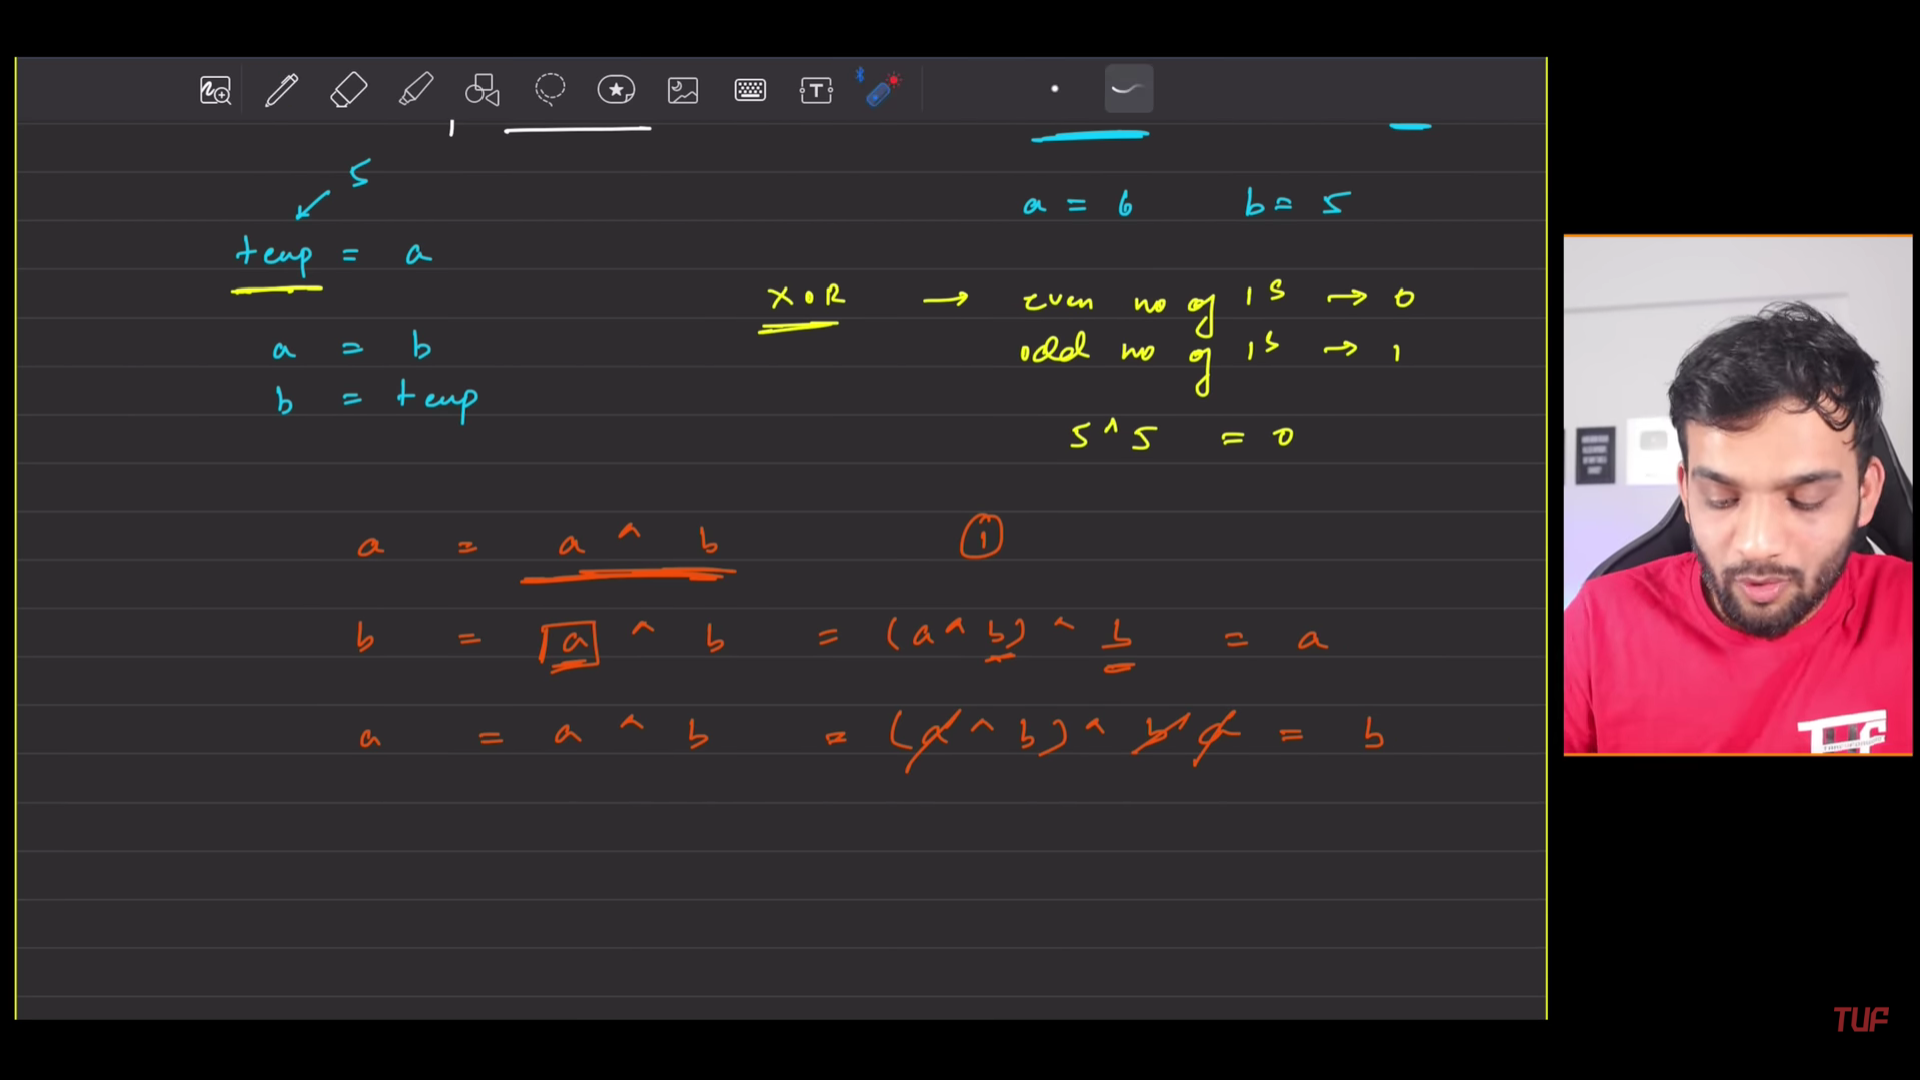 5
temp = a
a = b
b = temp
a = 6 b = 5
XOR → even no of 1s → 0
odd no of 1s → 1
5 ^ 5 = 0
a = a ^ b 1
b = a ^ b = (a ^ b) ^ b = a
a = a ^ b = (a ^ b) ^ b ^ a = b
TUF